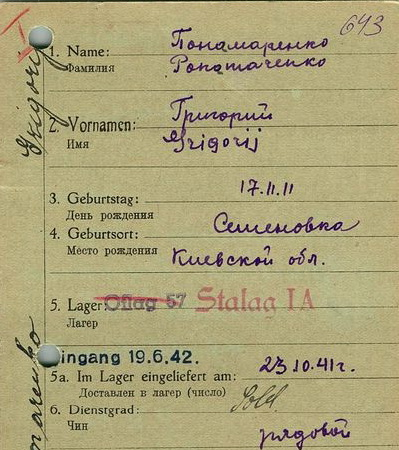 643
1. Name: Понамаренко
Фамилия Ponamarenko
2. Vornamen: Григорий
Имя Grigorij
3. Geburtstag: 17.11.11
День рождения
4. Geburtsort: Семеновка
Место рождения Киевской обл.
5. Lager: Oflag 57 Stalag IA
Лагерь
Eingang 19.6.42.
5a. Im Lager eingeliefert am: 23.10.41г.
Доставлен в лагер (число)
6. Dienstgrad: Sold.
Чин рядовой
Grigorij